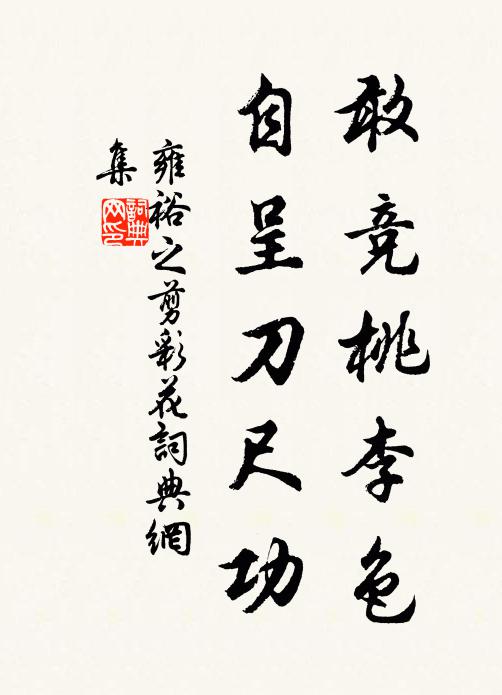 敢竞桃李色
自呈刀尺功
雍裕之剪彩花詞典網
集
詞典
网印